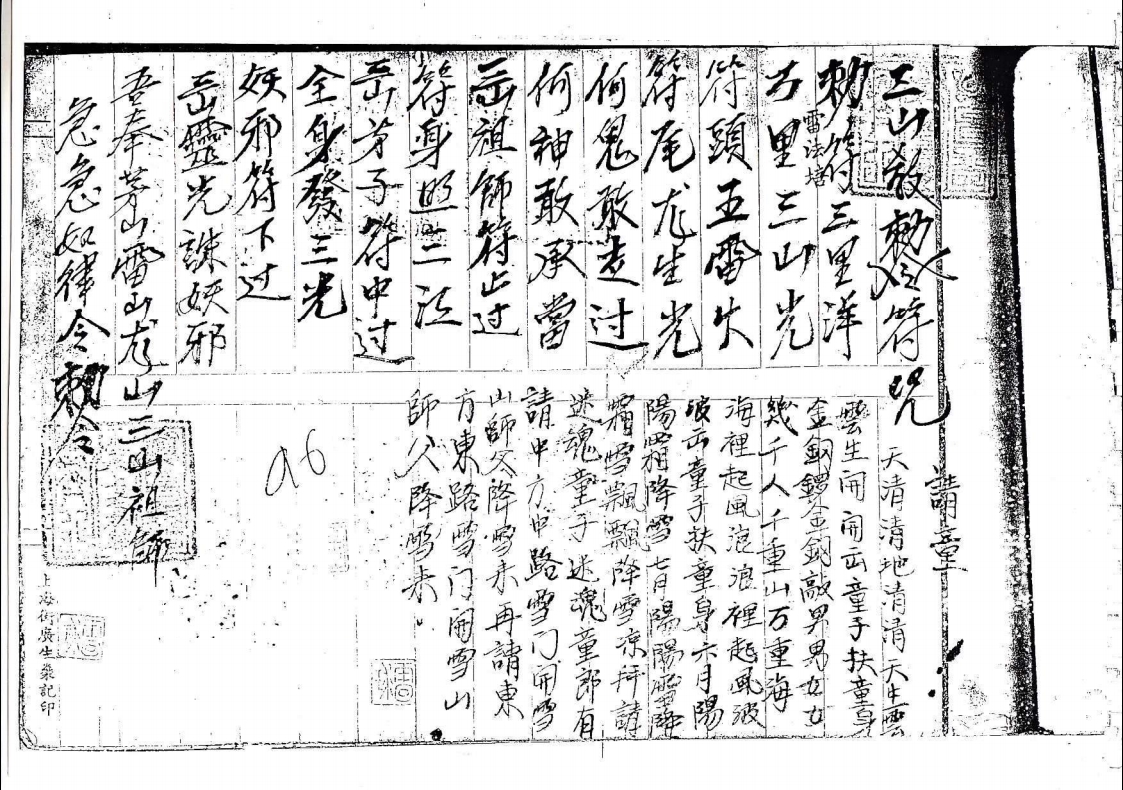 三山教勅令符咒
勅符三里洋
雷法壇
方里三山光
符頭五雷火
符尾尨生光
何鬼敢走过
何神敢承當
岳祖師符止过
符身照三江
岳茅子符中过
全身發三光
妖邪符下过
岳靈光誅妖邪
吾奉茅山雷山尨山三山祖師
急急如律令勅令
請童
天清清地清清天生雲
雲生開開岳童子扶童身
金銅鑼金銅敲男男女女
幾千人千重山万重海
海裡起風浪浪裡起風波
波岳童子扶童身六月陽
陽霜降雪七月陽陽霜降
霜雪飄飄降雪凉拜請
迷魂童子迷魂童郎有
請中方中路雪门開雪
山師父降雪来再請東
方東路雪门開雪山
師父降雪来
a6
上海街廣生裝記印